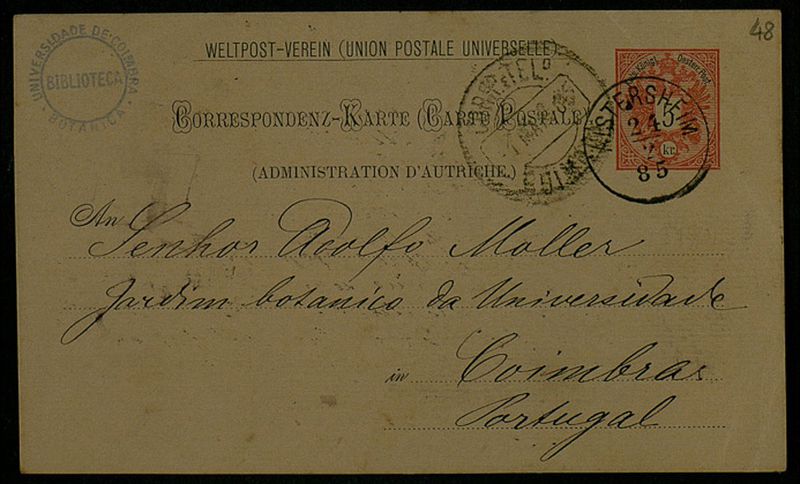 48
UNIVERSIDADE DE COIMBRA
BIBLIOTECA
BOTANICA
WELTPOST-VEREIN (UNION POSTALE UNIVERSELLE)
CORRESPONDENZ-KARTE (CARTE POSTALE).
(ADMINISTRATION D'AUTRICHE.)
5
kr.
ISTERSHEIM
24
2
85
An
Senhor Adolfo Moller
Jardim botanico da Universidade
in Coimbra
Portugal